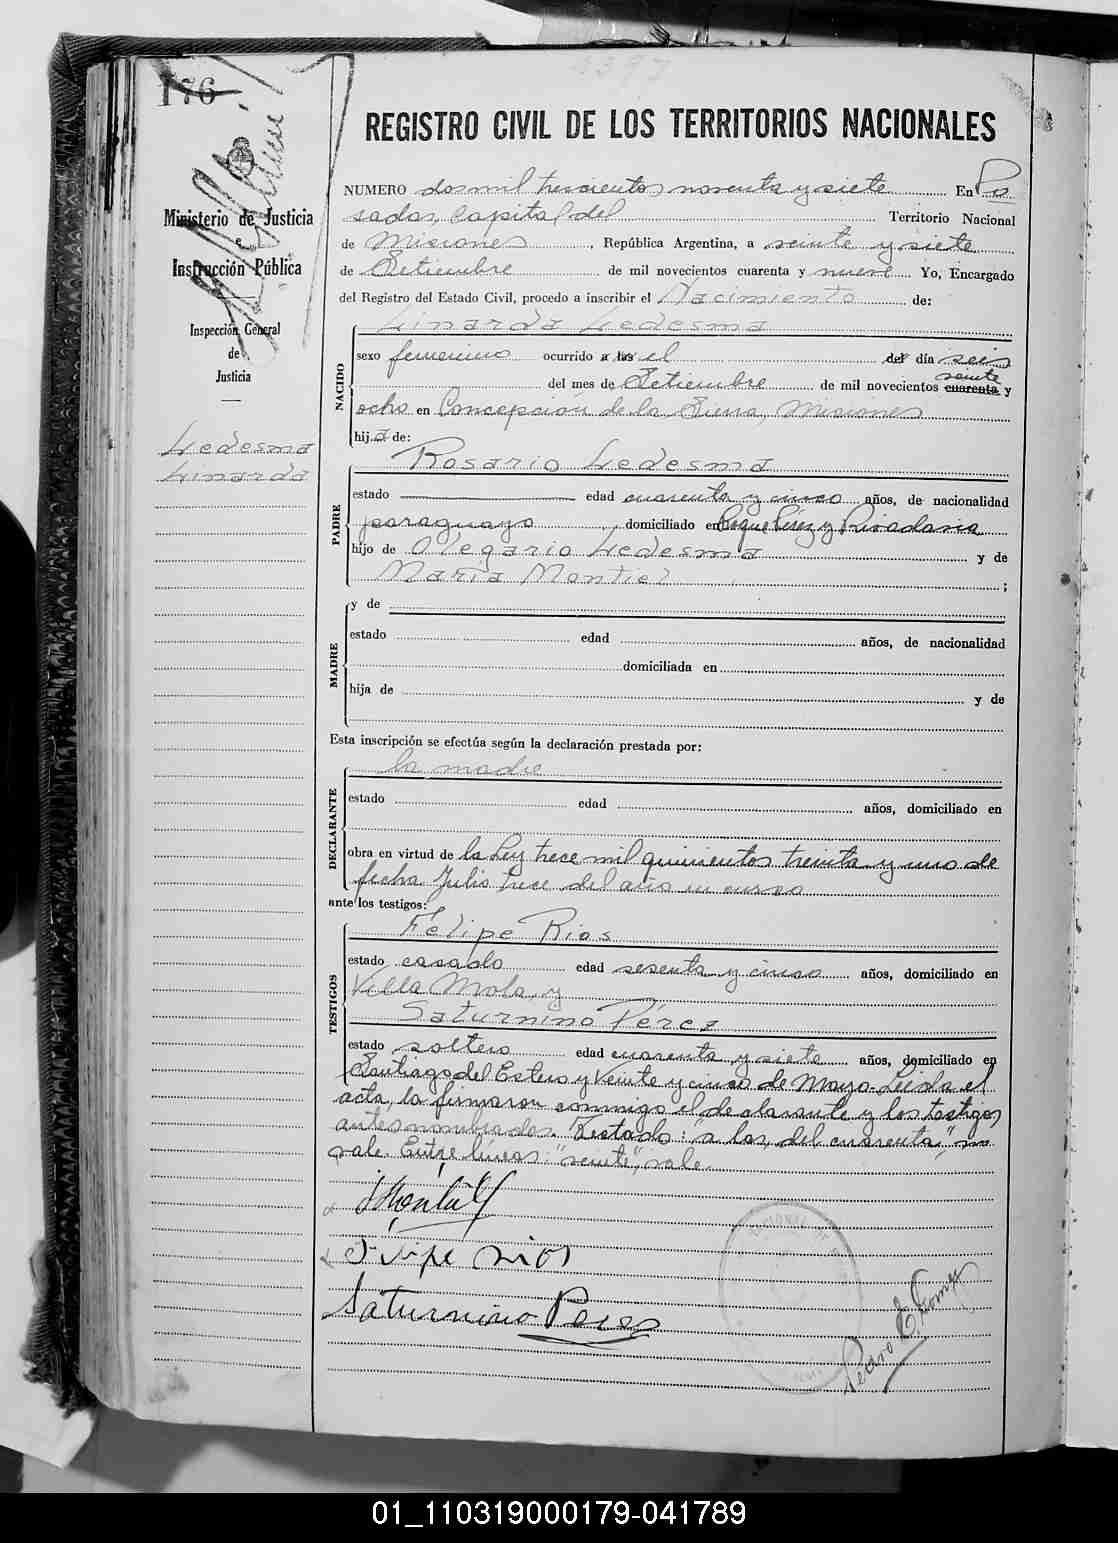 2397
176
REGISTRO CIVIL DE LOS TERRITORIOS NACIONALES
Ministerio de Justicia
e
Instrucción Pública
Inspección General
de
Justicia
Ledesma
Linarda
NUMERO dos mil trescientos noventa y siete En Po
sadas, Capital del Territorio Nacional
de Misiones, República Argentina, a veinte y siete
de Setiembre de mil novecientos cuarenta y nueve Yo, Encargado
del Registro del Estado Civil, procedo a inscribir el Nacimiento de:
NACIDO
Linarda Ledesma
sexo femenino ocurrido a las el del día seis
veinte
del mes de Setiembre de mil novecientos cuarenta y
ocho en Concepción de la Sierra, Misiones
hija de:
PADRE
Rosario Ledesma
estado edad cuarenta y cinco años, de nacionalidad
paraguayo, domiciliado en Roque Pérez y Rivadavia
hijo de Olegario Ledesma y de
María Montiel ;
MADRE
y de
estado edad años, de nacionalidad
domiciliada en
hija de y de
Esta inscripción se efectúa según la declaración prestada por:
DECLARANTE
la madre
estado edad años, domiciliado en
obra en virtud de la Ley trece mil quinientos treinta y uno de
fecha Julio trece del año en curso
ante los testigos:
TESTIGOS
Felipe Rios
estado casado edad sesenta y cinco años, domiciliado en
Villa Mola, y
Saturnino Pérez
estado soltero edad cuarenta y siete años, domiciliado en
Santiago del Estero y Veinte y cinco de Mayo - Leída el
acta, la firmaron conmigo el declarante y los testigos
antes nombrados. Testado: "a las, del cuarenta", no
vale. Entre lineas: "veinte", vale.
Felipe Rios
Saturnino Perez
Pedro E. Gomez
01_110319000179-041789